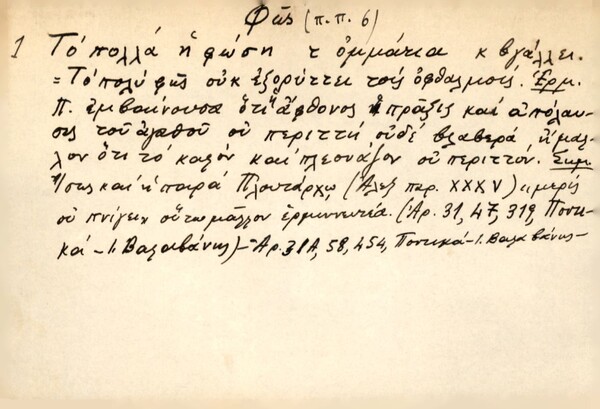 Φῶς (π.π. 6)
1 Τό πολλά ἡ φώση τ ὀμμάτια κ βγάλλει.
= Τό πολύ φῶς οὐκ ἐξορύττει τούς ὀφθαλμούς. Ἑρμ.
Π. ἐμβαίνουσα ὅτι ἄφθονος πρᾶξις καί ἀπόλαυ-
σις τοῦ ἀγαθοῦ οὐ περιττή οὐδέ βλαβερά ἤ μᾶλ-
λον ὅτι τό καλόν καί πλεονάζον οὐ περιττόν. Σημ.
Ἴσως καί ἡ παρά Πλουτάρχῳ (Ἀλεξ περ. XXXV)
οὐ πνίγει» οὕτω μᾶλλον ἑρμηνευτέα. (Ἀρ. 31, 47, 319, Ποντι-
κά - Ι. Βαλαβάνης) - Ἀρ. 31Α, 58, 454, Ποντικά - Ι. Βαλαβάνης -